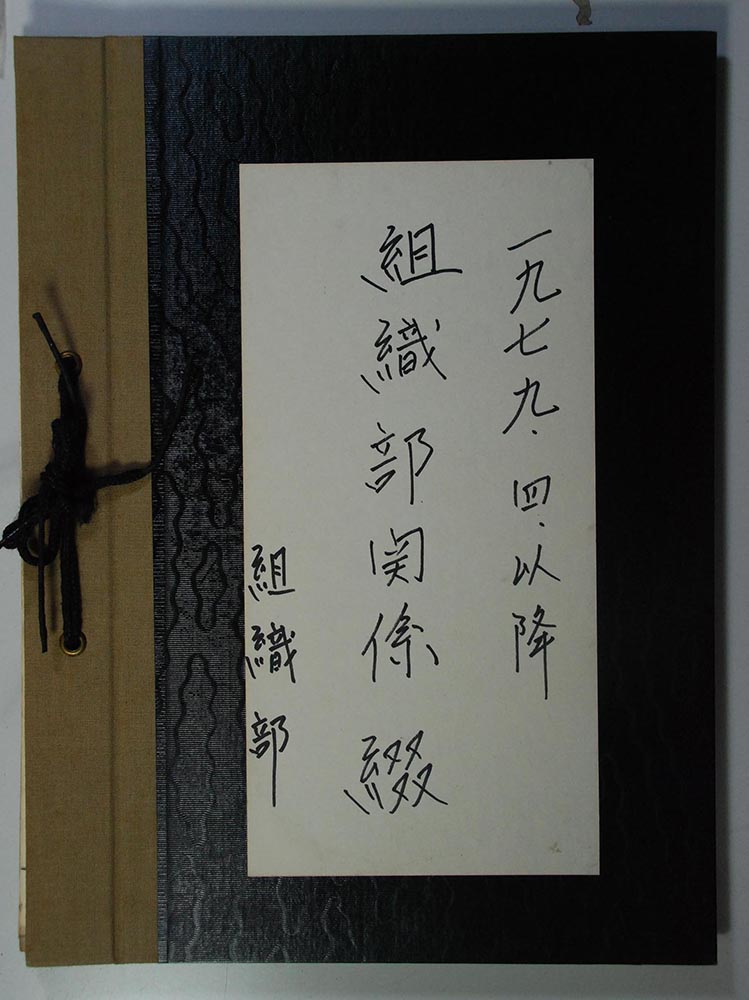 一九七九、四、以降
組織部関係綴
組織部